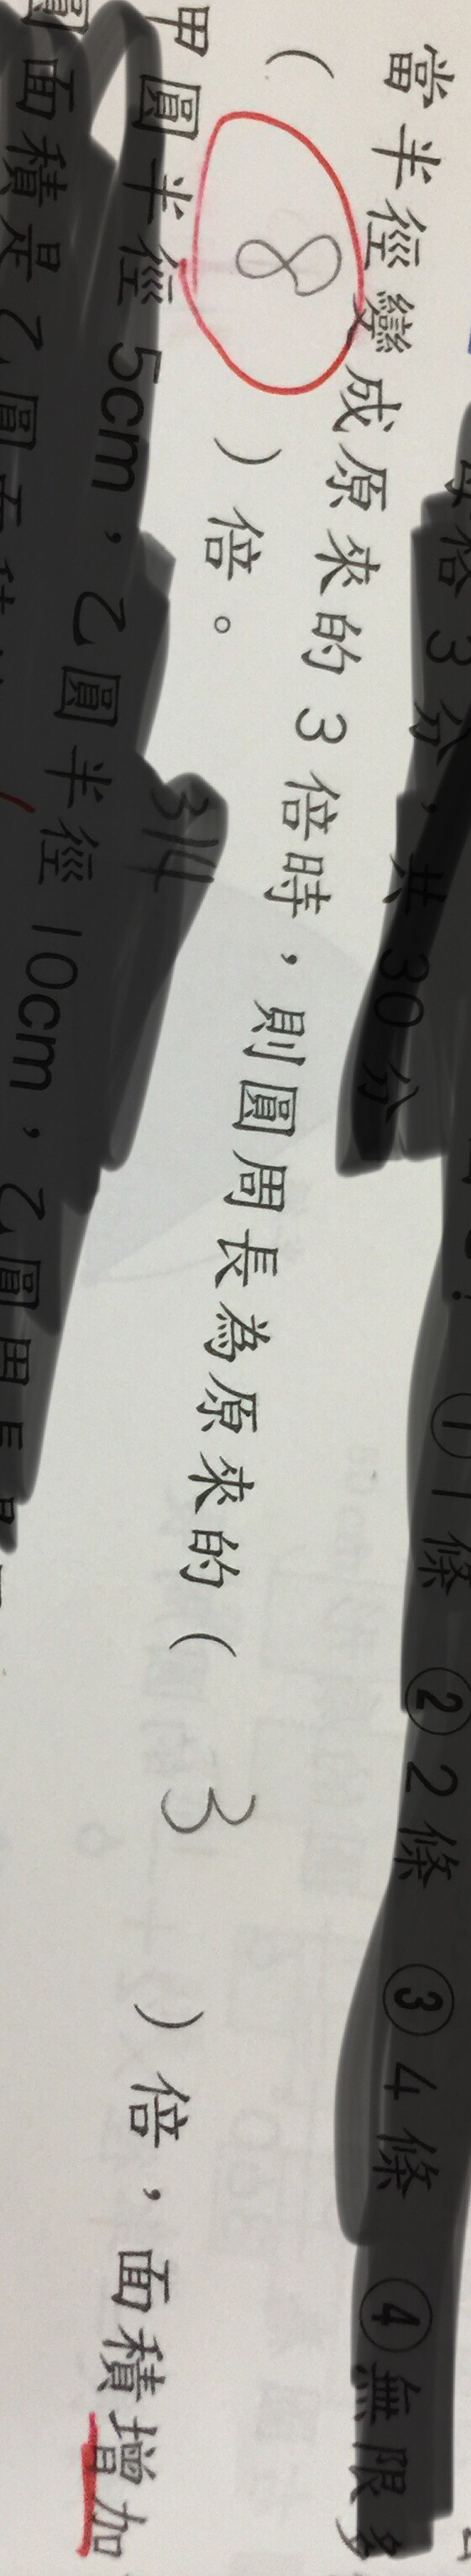 每格3分，共30分
①1條 ②2條 ③4條 ④無限多
當半徑變成原來的3倍時，則圓周長為原來的( 3 )倍，面積增加
( 8 )倍。
314
甲圓半徑5cm，乙圓半徑10cm，乙圓周長是
圓面積是乙圓面積